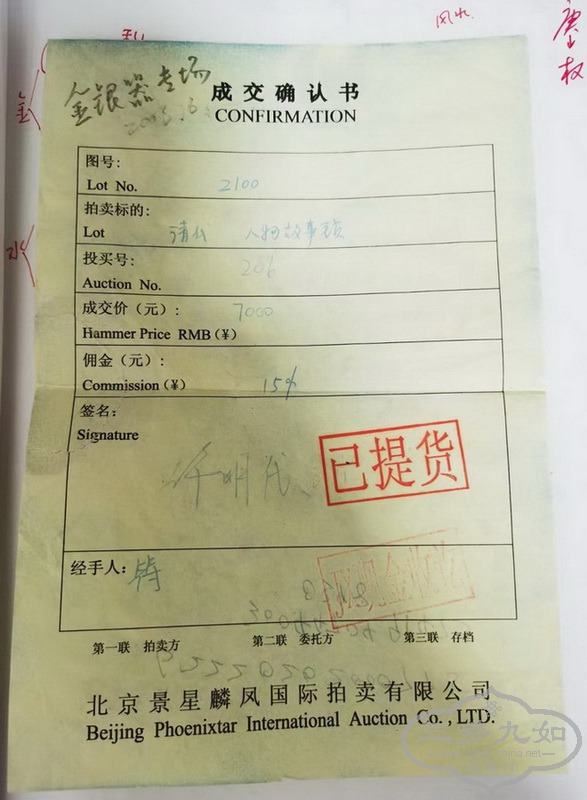 风水
金
水
金银器专场
成交确认书
CONFIRMATION
图号：
Lot No. 2100
拍卖标的：
Lot 清代 人物故事锁
投买号：
Auction No. 206
成交价（元）：
Hammer Price RMB(￥) 7000
佣金（元）：
Commission(￥) 15%
签名：
Signature
已提货
经手人：
第一联 拍卖方 第二联 委托方 第三联 存档
北京景星麟凤国际拍卖有限公司
Beijing Phoenixtar International Auction Co.,LTD.
三多九如